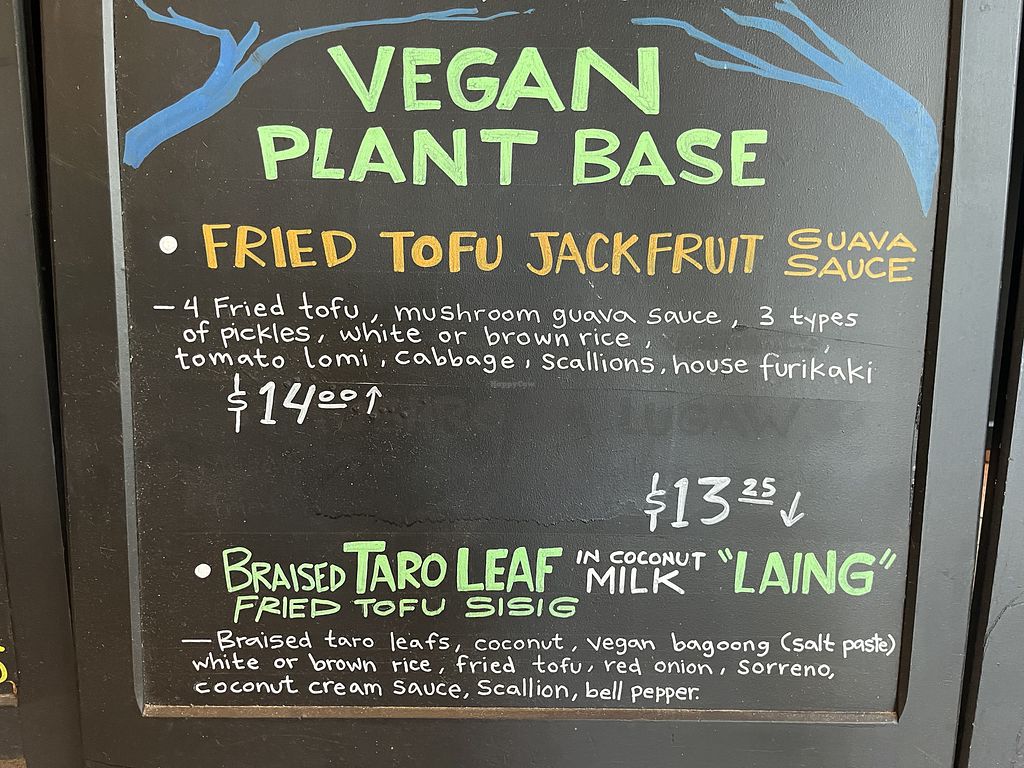 VEGAN
PLANT BASE
• FRIED TOFU JACKFRUIT GUAVA SAUCE
— 4 Fried tofu, mushroom guava sauce, 3 types
of pickles, white or brown rice,
tomato lomi, cabbage, scallions, house furikaki
$14.00 ↑
LUGAW
$13.25 ↓
• BRAISED TARO LEAF IN COCONUT MILK "LAING"
FRIED TOFU SISIG
— Braised taro leafs, coconut, vegan bagoong (salt paste)
white or brown rice, fried tofu, red onion, sorreno,
coconut cream sauce, scallion, bell pepper.
HappyCow